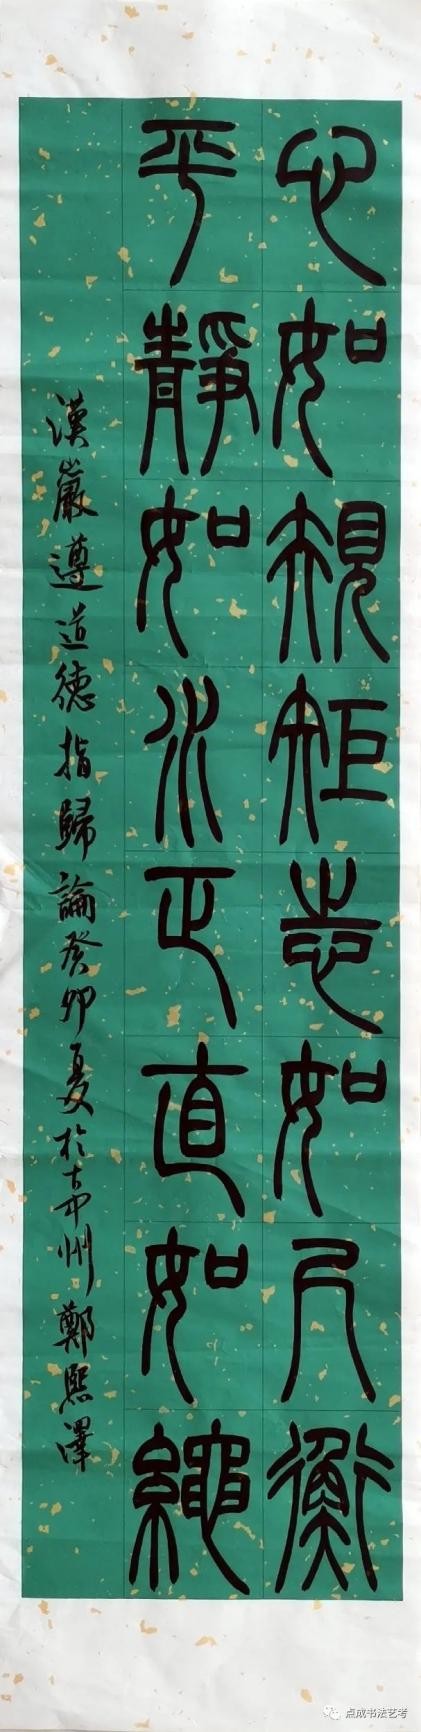 心如規矩志如尺衡
平靜如水正直如繩
漢嚴遵道德指歸論癸卯夏於古中州鄭熙澤
点成书法艺考